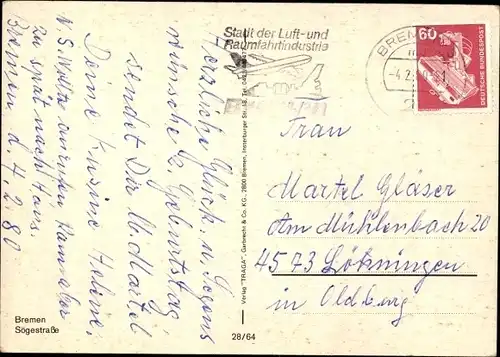 Stadt der Luft-und
Raumfahrtindustrie
BREM
-4.2.
60
DEUTSCHE BUNDESPOST
Herzliche Glück- u. Segens
wünsche z. Geburtstag
sendet Dir u. Martel
Deine Kusine Helene,
N.S. Wollte anrufen,
zu spät nach Haus.
Bremen d. 4.2.80
Verlag "TRAGA", Garbrecht & Co. KG., 2800 Bremen, Insterburger Str. 18, Tel.
Frau
Martel Gläser
Am Mühlenbach 20
4573 Löhningen
in Oldbg.
Bremen
Sögestraße
28/64